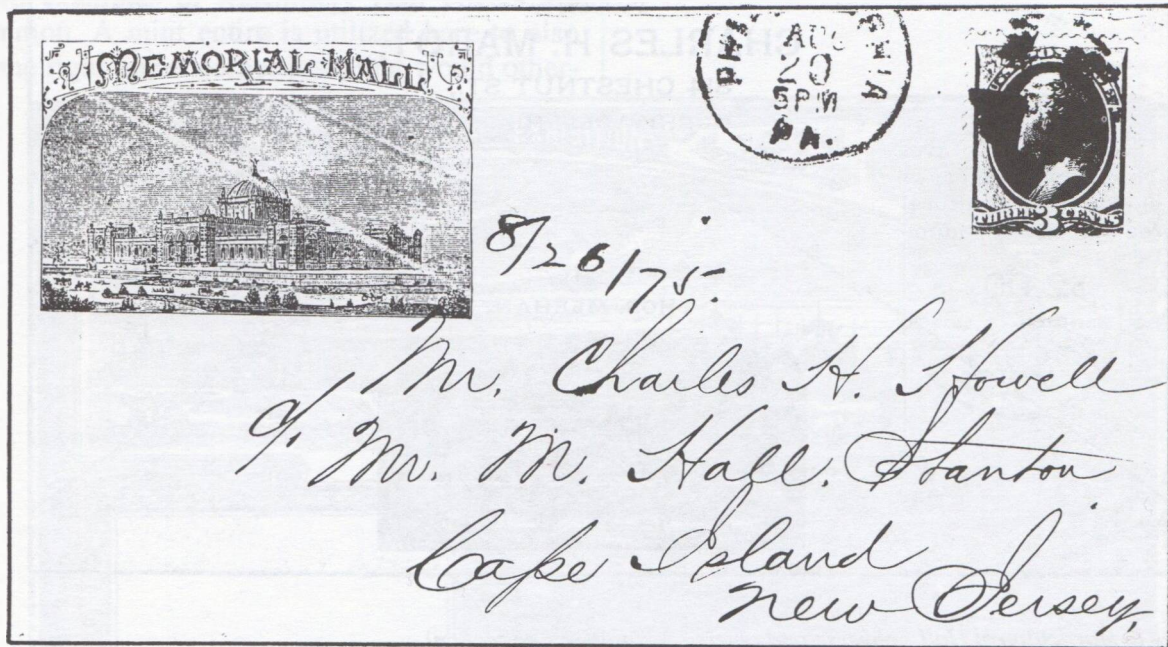 MEMORIAL HALL
AUG
20
5PM
PA.
THREE 3 CENTS
8/26/75
Mr. Charles H. Howell
c/o Mr. M. Hall. Stanton
Cape Island
New Jersey,